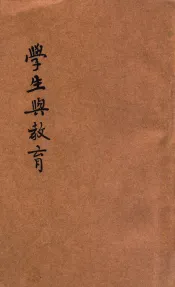 學生與教育